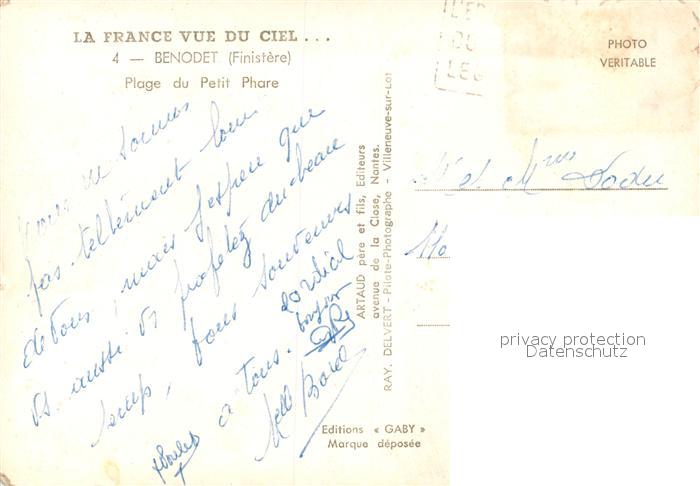 LA FRANCE VUE DU CIEL ...
4 — BENODET (Finistère)
Plage du Petit Phare
PHOTO
VERITABLE
Nous ne sommes
pas tellement loin
de vous, mais j'espère que
vs. aussi vs profitez du beau
temps, bons souvenirs
à tous.
cordial
bonjour
Melle Borel
M. et Mme
ARTAUD père et fils, Editeurs
avenue de la Close, Nantes.
RAY. DELVERT - Pilote-Photographe - Villeneuve-sur-Lot
Editions « GABY »
Marque déposée
privacy protection
Datenschutz